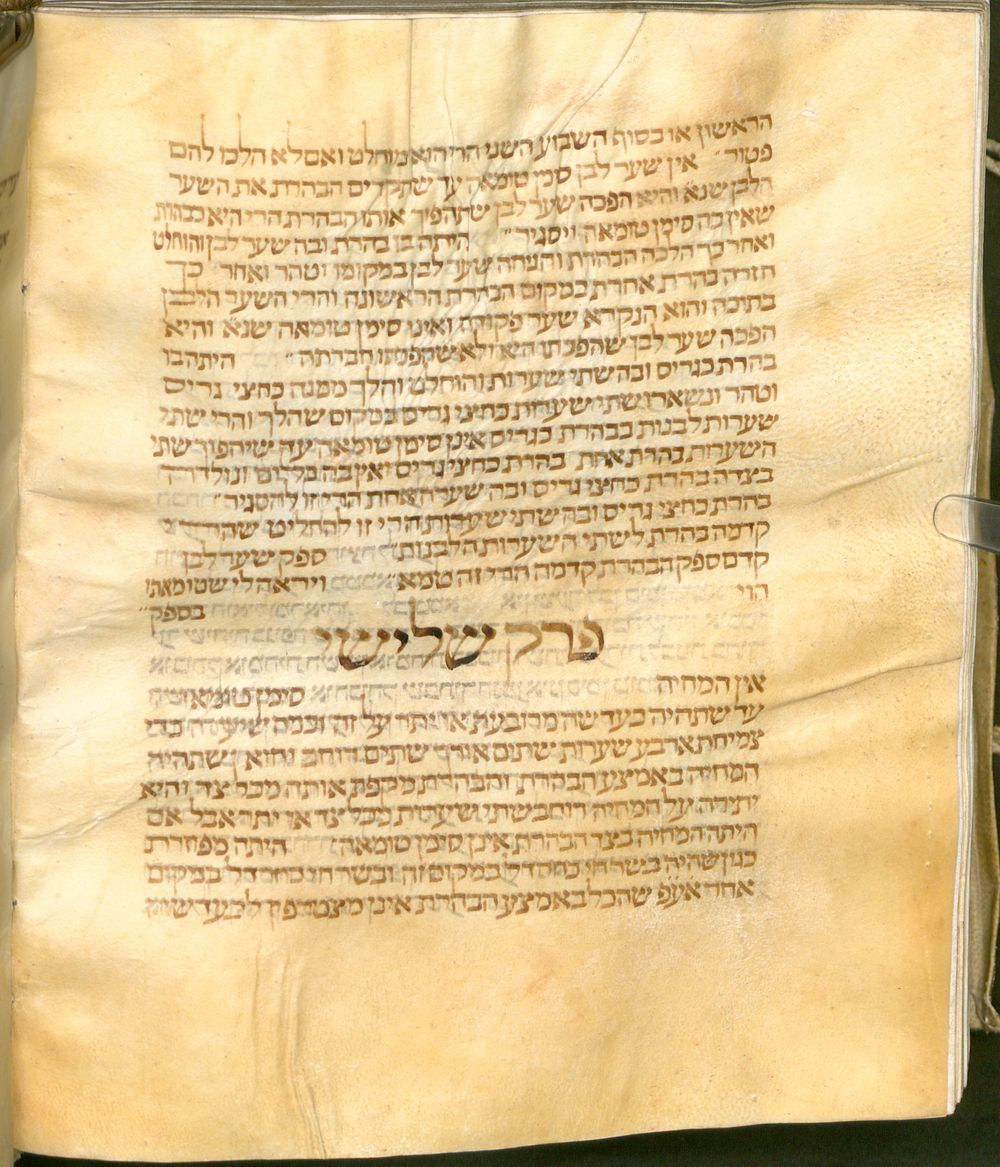 הראשון או בסוף השבוע השני הרי הוא מוחלט ואם לא הלכו להם
פטור״ אין שער לבן סימן טומאה עד שתקדים הבהרת את השער
הלבן שנא׳ והיא הפכה שער לבן שתהפוך אותו הבהרת הרי היא כבהרת
שאין בה סימן טומאה ויסגיר״ היתה בו בהרת ובה שער לבן והוחלט
ואחר כך הלכה הבהרת והניחה שער לבן במקומו וטהר ואחר כך
חזרה בהרת אחרת במקום הבהרת הראשונה והרי השער הלבן
בתוכה והוא הנקרא שער פקודה ואינו סימן טומאה שנא׳ והיא
הפכה שער לבן שהפכתו היא ולא שהפכתו חברתה״ היתה בו
בהרת כגריס ובה שתי שערות והוחלט והלך ממנה כחצי גריס
וטהר ונשארו שתי שערות כחצי גריס במקום שהלך והרי שתי
שערות לבנות בבהרת כגריס אינן סימן טומאה עד שיהפוך שתי
השערות בהרת אחת בהרת כחצי גריס ואין בה כלום ונולד דרך
בצדה בהרת כחצי גריס ובה שערה אחת הרי זו להסגיר״
בהרת כחצי גריס ובה שתי שערות הרי זו להחליט שהרי
קדמה בהרת לשתי השערות הלבנות״ ספק שער לבן
קדם ספק הבהרת קדמה הרי זה טמא״ ויראה לי שטומאתו
הוי בספק״
פרק שלישי
אין המחיה סימן טומאה
עד שתהיה כעדשה מרובעת או יתר על זה וכמה שיעורה כדי
צמיחת ארבע שערות שתים אורך שתים רוחב והוא שתהיה
המחיה באמצע הבהרת והבהרת מקפת אותה מכל צד והיא
יתירה על המחיה רוחב שתי שערות מכל צד או יתר אבל אם
היתה המחיה בצד הבהרת אינן סימן טומאה היתה מפוזרת
כגון שהיה בשר חי כחרדל במקום זה ובשר חי כחרדל במקום
אחר אעפ׳ שהכל באמצע הבהרת אינן מצטרפין לכעדשה